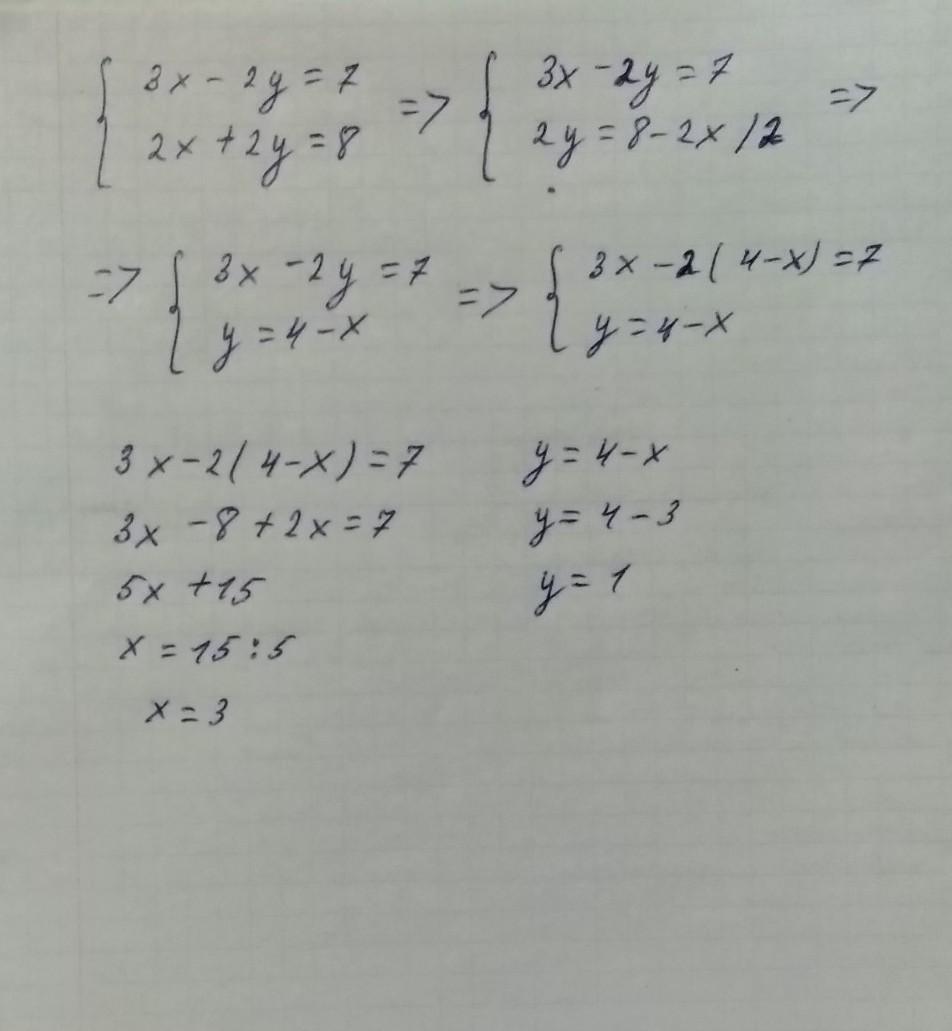 { 3x - 2y = 7 => { 3x - 2y = 7 =>
2x + 2y = 8 2y = 8 - 2x /2
=> { 3x - 2y = 7 => { 3x - 2( 4-x) = 7
y = 4 - x y = 4 - x
3x - 2( 4-x) = 7
3x - 8 + 2x = 7
5x +15
x = 15 : 5
x = 3
y = 4 - x
y = 4 - 3
y = 1